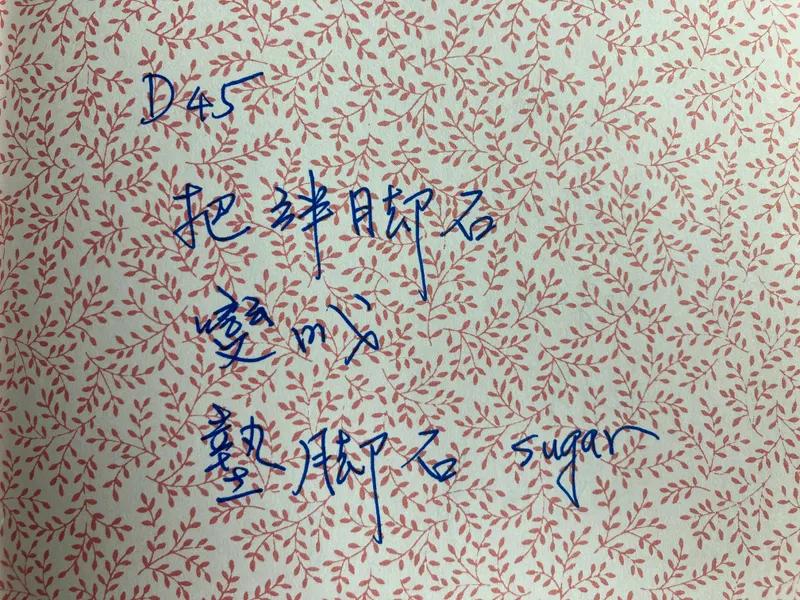 D45
把絆脚石
變成
墊脚石 sugar